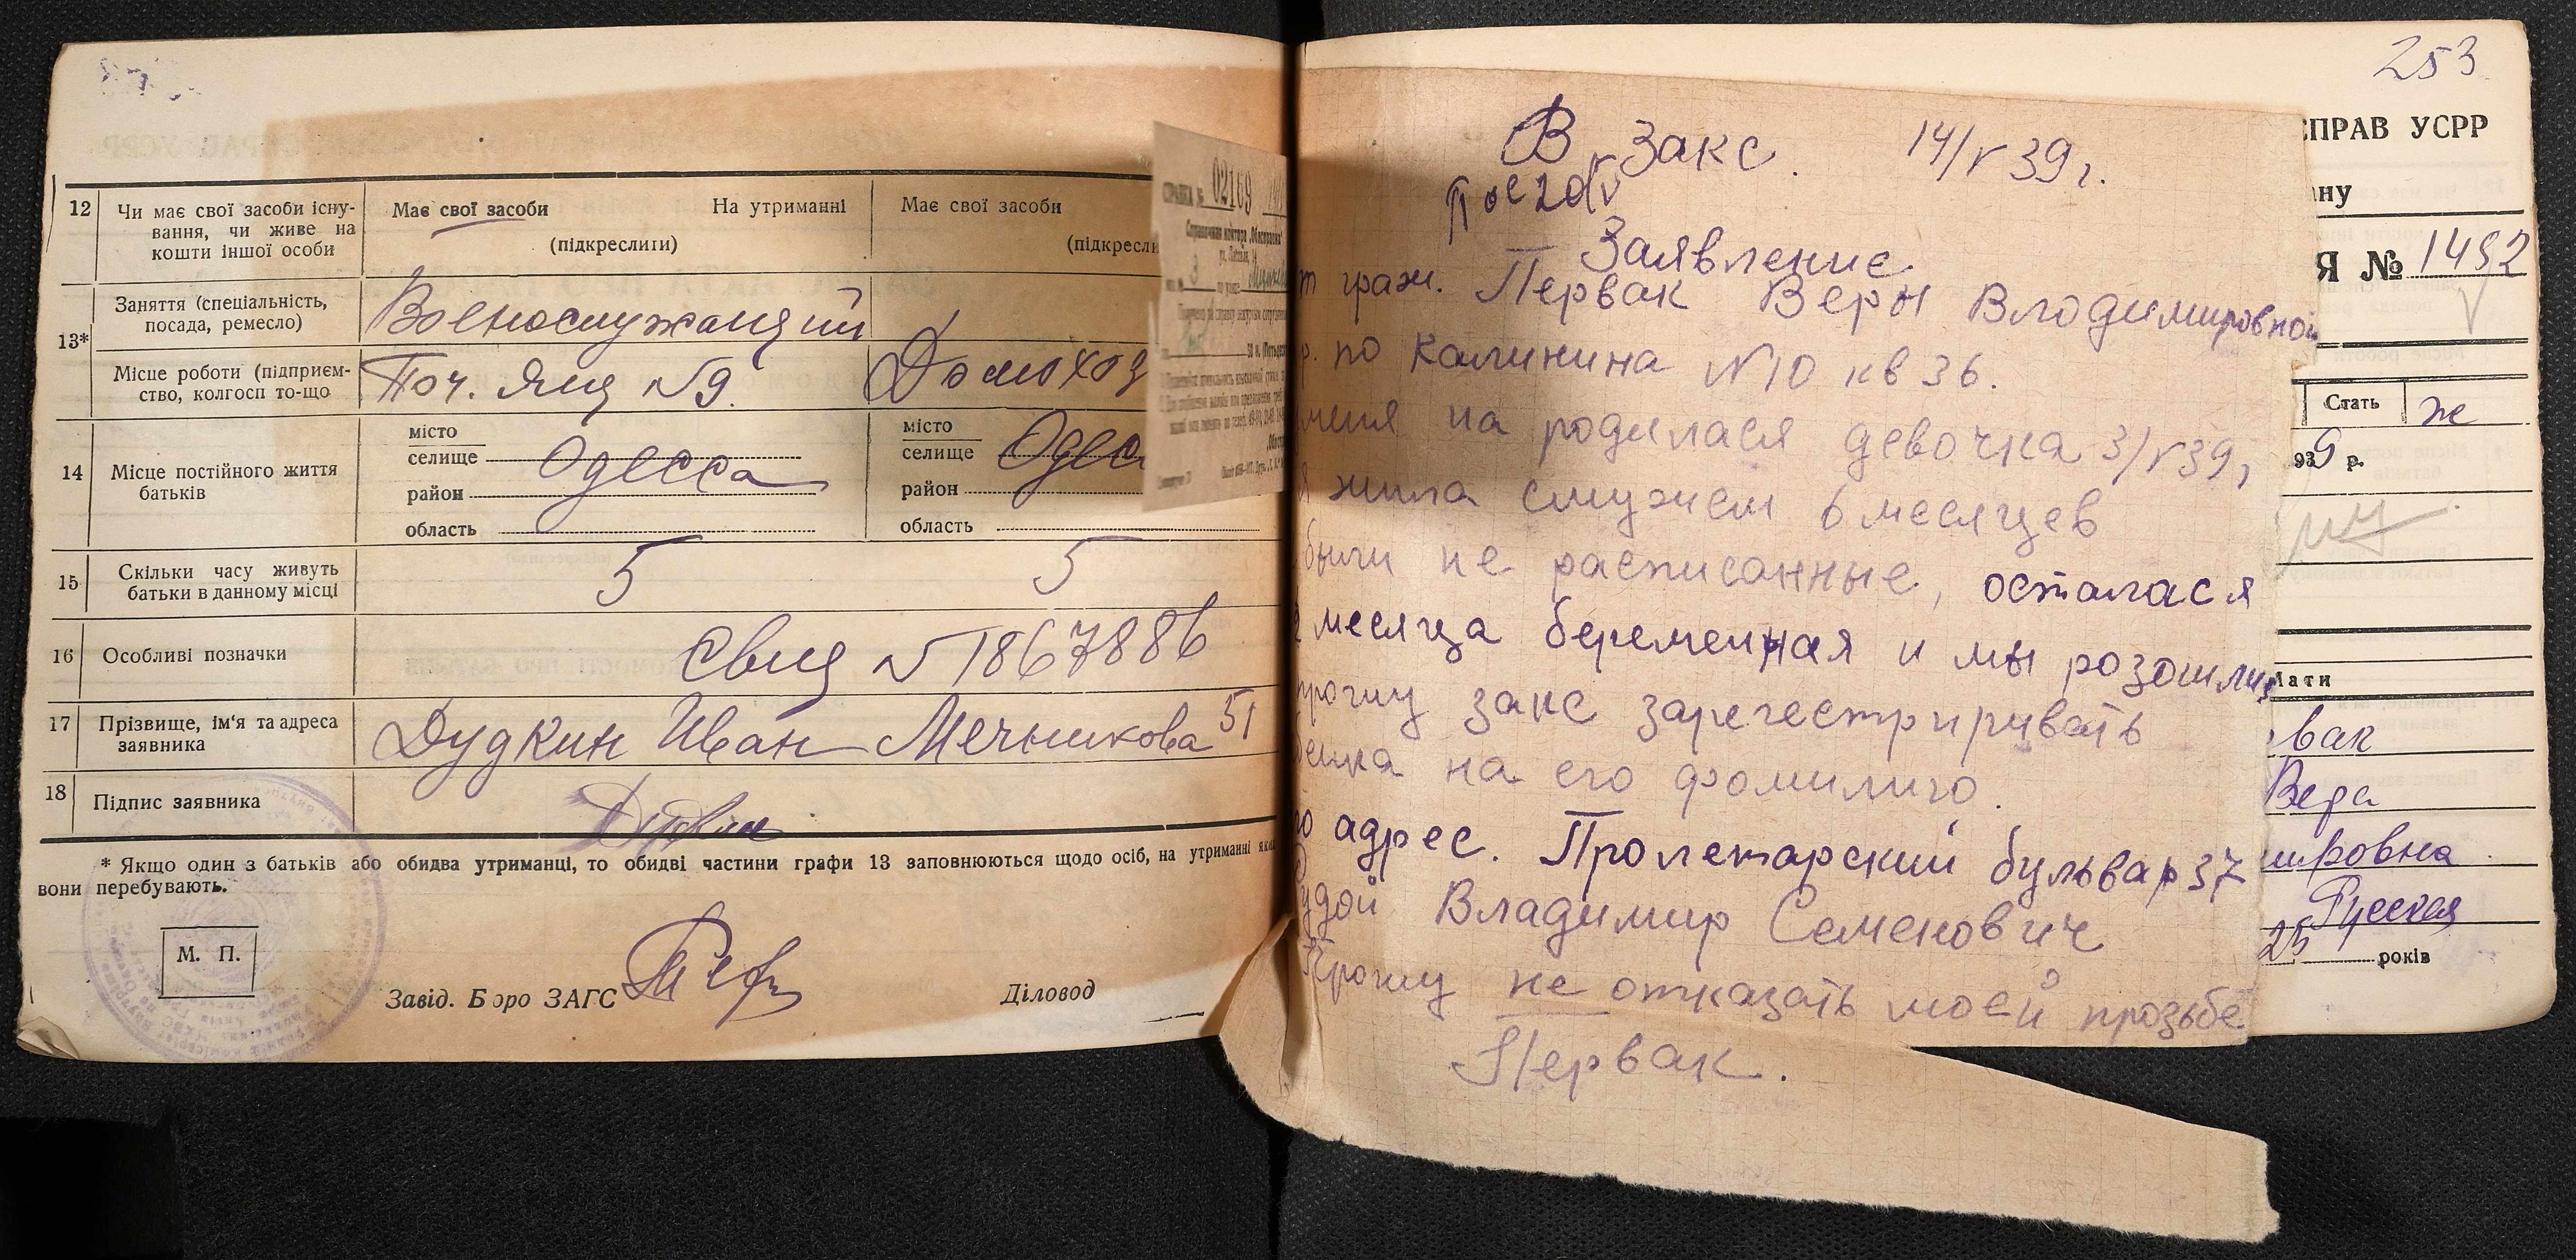 12 Чи має свої засоби існу-
вання, чи живе на
кошти іншої особи
Має свої засоби На утриманні
(підкреслити)
Має свої засоби
(підкресли
13*
Заняття (спеціальність,
посада, ремесло)
Военослужащий
Місце роботи (підприєм-
ство, колгосп то-що
Поч. Ящ №9.
Домохоз
14 Місце постійного життя
батьків
місто
селище Одесса
район
область
місто
селище Одес
район
область
15 Скільки часу живуть
батьки в данному місці
5 5
16 Особливі позначки
Свид №1867886
17 Прізвище, ім'я та адреса
заявника
Дудкин Иван Мечникова 51
18 Підпис заявника
* Якщо один з батьків або обидва утриманці, то обидві частини графи 13 заповнюються щодо осіб, на утриманні яки
вони перебувають.
М. П.
Завід. Бюро ЗАГС
Діловод
СПРАВКА № 02169
253
В Закс. 14/V 39 г.
Заявление
т граж. Первак Веры Влодимировной
р. по Калинина №10 кв 36.
меня на родилася девочка 3/V 39 г
я жила смужем 6 месяцев
были не расписанные, осталася
2 месяца беременная и мы розошлись
прошу закс зарегестрирувать
бенка на его фомилию.
го адрес. Пролетарский бульвар 37
удой Владимир Семенович
Прошу не отказать моей прозьбе
Первак.
СПРАВ УСРР
ну
Я № 1492
Стать ж
939 р.
Мати
вак
Вера
мировна
Русская
25 років